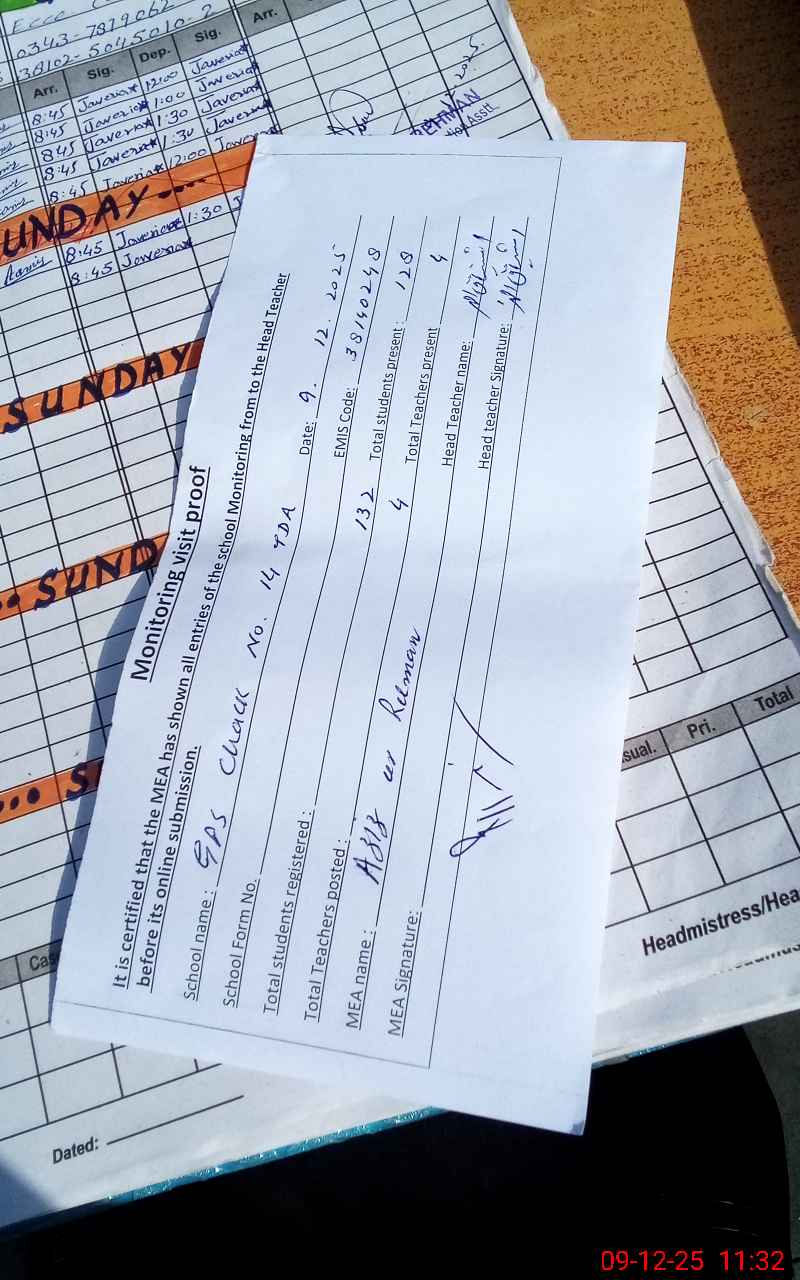 0343-7819062
38102-5045010-2
Arr. Sig. Dep. Sig. Arr.
8:45 Javeria 12:00 Javeria
8:45 Javeria 1:00 Javeria
8:45 Javeria 1:30 Javeria
8:45 Javeria 1:30 Javeria
8:45 Javeria 12:00 Javeria
UNDAY ....
8:45 Javeria 1:30
8:45 Javeria
SUNDAY
.. SUND
... S
2025
REHMAN
Monitoring visit proof
It is certified that the MEA has shown all entries of the school Monitoring from to the Head Teacher
before its online submission.
School name : GPS Chack No. 14 TDA Date: 9. 12. 2025
School Form No. EMIS Code: 38140248
Total students registered : 132 Total students present : 128
Total Teachers posted : 4 Total Teachers present 4
MEA name : Aziz ur Rehman Head Teacher name:
MEA Signature: Head teacher Signature:
Cas
Dated:
sual. Pri. Total
Headmistress/Hea
09-12-25 11:32